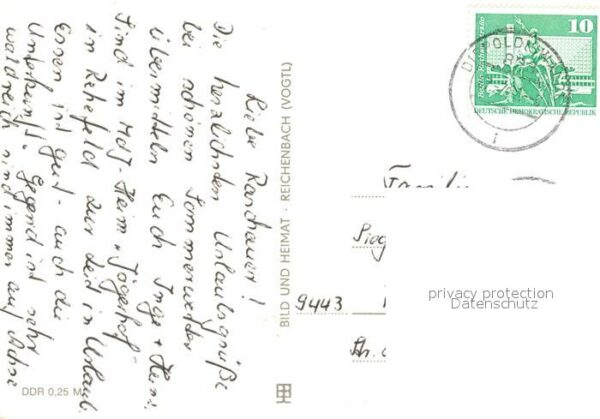 Liebe Raschauer!
Die herzlichsten Urlaubsgrüße
bei schönem Sommerwetter
übermitteln Euch Inge + Heinz.
Sind im MdJ-Heim "Jägerhof"
in Rehefeld zur Zeit in Urlaub.
Essen ist gut - auch die
Unterkunft. Gegend ist sehr
waldreich sind immer auf Achse
DDR 0,25 M
BILD UND HEIMAT · REICHENBACH (VOGTL)
10
Berlin, Rathausstraße
DEUTSCHE DEMOKRATISCHE REPUBLIK
Familie
9443
privacy protection
Datenschutz